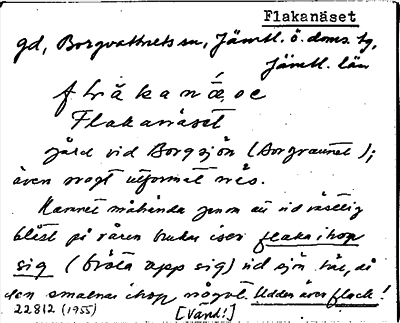 Flakanäset
gd, Borgvattnets sn, Jämtl. ö. doms. tg,
Jämtl. län
Flakanäset
gård vid Borgsjön (Borgvattnet);
även något utformat näs.
Namnet måhända genom att vid västlig
blåst på våren brukar isen flaka ihop
sig (bröta opp sig) vid sjön här, då
den smalnar ihop något. Udden är en flack!
22812 (1955) [Värd!]